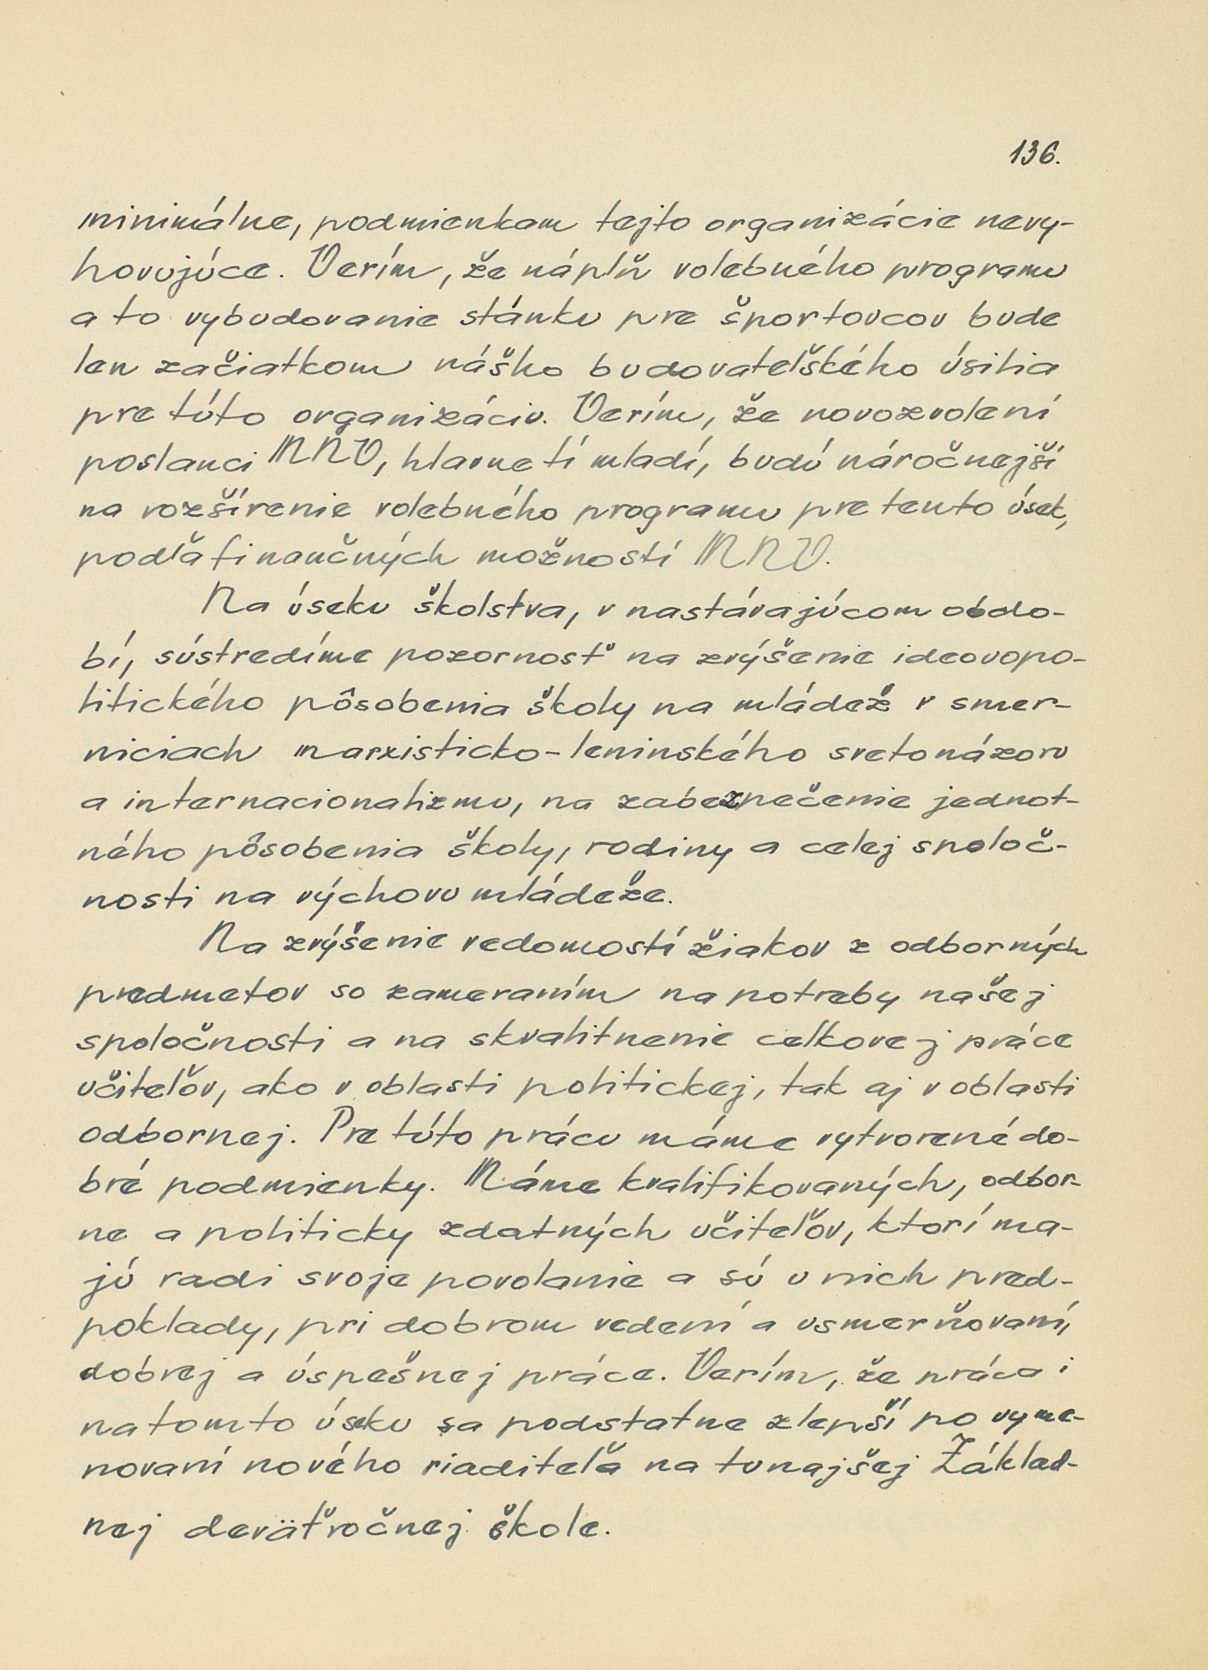 136.
minimálne, podmienkam tejto organizácie nevy-
hovujúce. Verím, že náplň volebného programu
a to vybudovanie stánku pre športovcov bude
len začiatkom nášho budovateľského úsilia
pre túto organizáciu. Verím, že novozvolení
poslanci MNV, hlavne tí mladí, budú náročnejší
na rozšírenie volebného programu pre tento úsek,
podľa finančných možností MNV.
Na úseku školstva, v nastávajúcom obdo-
bí, sústredíme pozornosť na zvýšenie ideovopo-
litického pôsobenia školy na mládež v smer-
niciach marxisticko-leninského svetonázoru
a internacionalizmu, na zabezpečenie jednot-
ného pôsobenia školy, rodiny a celej spoloč-
nosti na výchovu mládeže.
Na zvýšenie vedomostí žiakov z odborných
predmetov so zameraním na potreby našej
spoločnosti a na skvalitnenie celkovej práce
učiteľov, ako v oblasti politickej, tak aj v oblasti
odbornej. Pre túto prácu máme vytvorené do-
bré podmienky. Máme kvalifikovaných, odbor-
ne a politicky zdatných učiteľov, ktorí ma-
jú radi svoje povolanie a sú u nich pred-
poklady, pri dobrom vedení a usmerňovaní,
dobrej a úspešnej práce. Verím, že práca i
na tomto úseku sa podstatne zlepší po vyme-
novaní nového riaditeľa na tunajšej Základ-
nej deväťročnej škole.